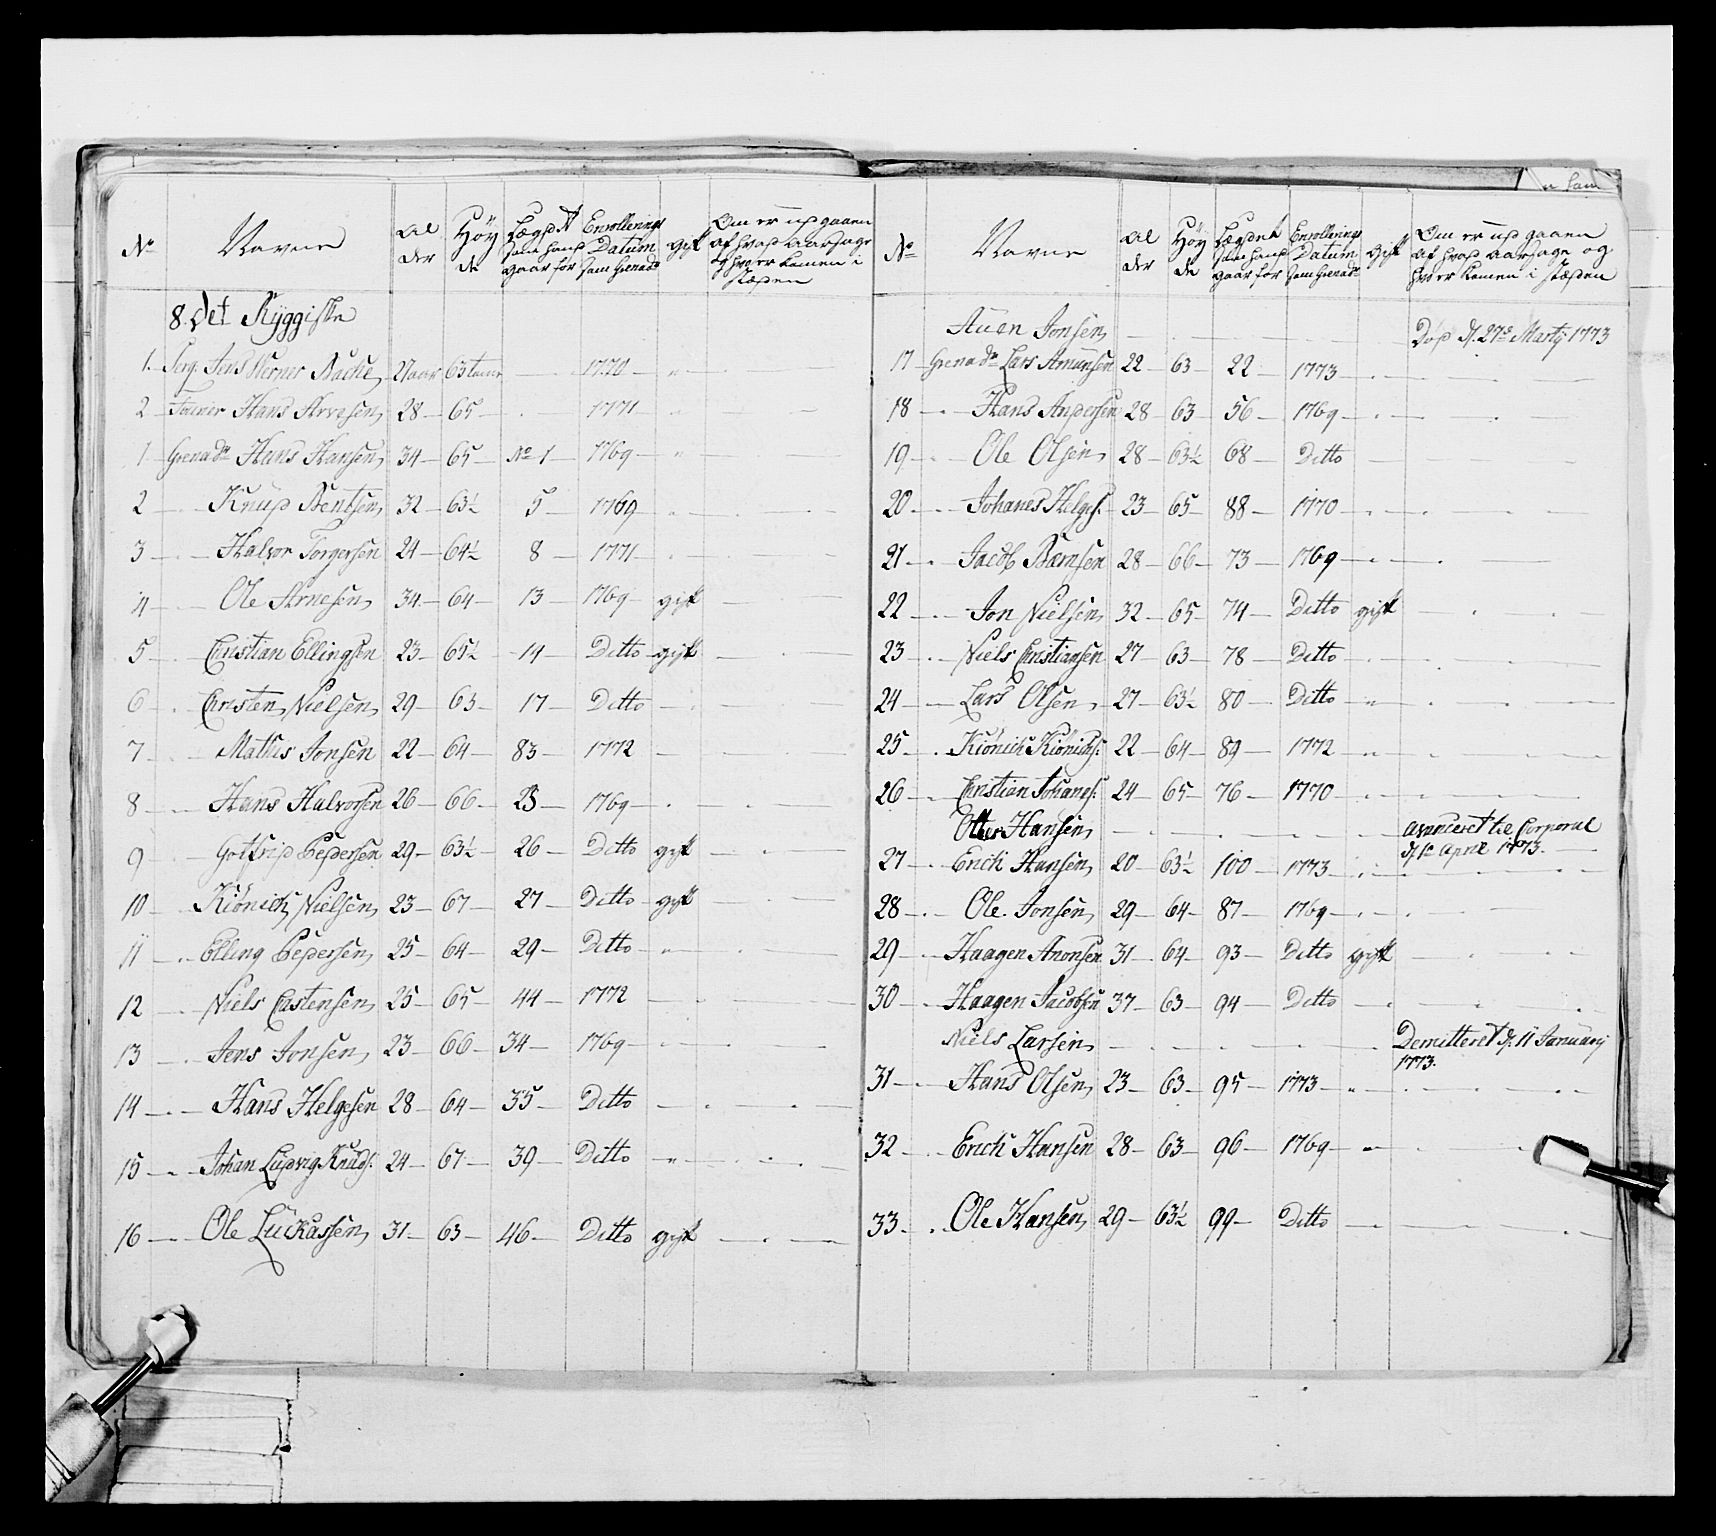 No Navne Al der Høy de Lægdet som hans gaar for Enrollerings Datum som Grenadr gift Om er udgaaen af hvad aarsage og hvo er kommen i stæden
8. det Ryggiske
1. Serg. Jens Werner Bache 27 aar 63 tom 1770
2 Fourier Hans Arvesen 28 65 1771
1 Grenadr Hans Hansen 34 65 No 1 1769
2 Knud Bentsen 32 63½ 5 1769
3 Halvor Torgersen 24 64½ 8 1771
4 Ole Arnesen 34 64 13 1769 gift
5 Christian Ellingsen 23 65½ 14 Ditto gift
6 Christen Nielsen 29 63 17 Ditto
7 Mathis Jonsen 22 64 83 1772
8 Hans Halvorsen 26 66 23 1769
9 Gotfrid Pedersen 29 63½ 26 Ditto gift
10 Kiönich Nielsen 23 67 27 Ditto gift
11 Elling Pedersen 25 64 29 Ditto
12 Niels Castensen 25 65 44 1772
13 Jens Jonsen 23 66 34 1769
14 Hans Helgesen 28 64 35 Ditto
15 Johan Ludvig Knuds. 24 67 39 Ditto
16 Ole Luckassen 31 63 46 Ditto gift
No Navne Al der Høy de Lægdet som hans gaar for Enrollerings Datum som Grenadr gift Om er udgaaen af hvad aarsage og hvo er kommen i stæden
Auen Jonsen Död d. 27de Martij 1773
17 Grenadr Lars Amunsen 22 63 22 1773
18 Hans Andersen 28 63 56 1769
19 Ole Olsen 28 63½ 68 Ditto
20 Johanes Helges. 23 65 88 1770
21 Jacob Bærnsen 28 66 73 1769
22 Jon Nielsen 32 65 74 Ditto gift
23 Niels Christiansen 27 63 78 Ditto
24 Lars Olsen 27 63½ 80 Ditto
25 Kiönich Kiönichs. 22 64 89 1772
26 Christian Johanes. 24 65 76 1770
Otter Hansen avanceret til Corporal
d. 1te April 1773.
27 Erich Hansen 20 63½ 100 1773
28 Ole Jonsen 29 64 87 1769
29 Haagen Anonsen 31 64 93 Ditto gift
30 Haagen Jacobsen 37 63 94 Ditto
Niels Larsen Demitteret d. 11 Januarij
1773.
31 Hans Olsen 23 63 95 1773
32 Erich Hansen 28 63 96 1769
33 Ole Hansen 29 63½ 99 Ditto